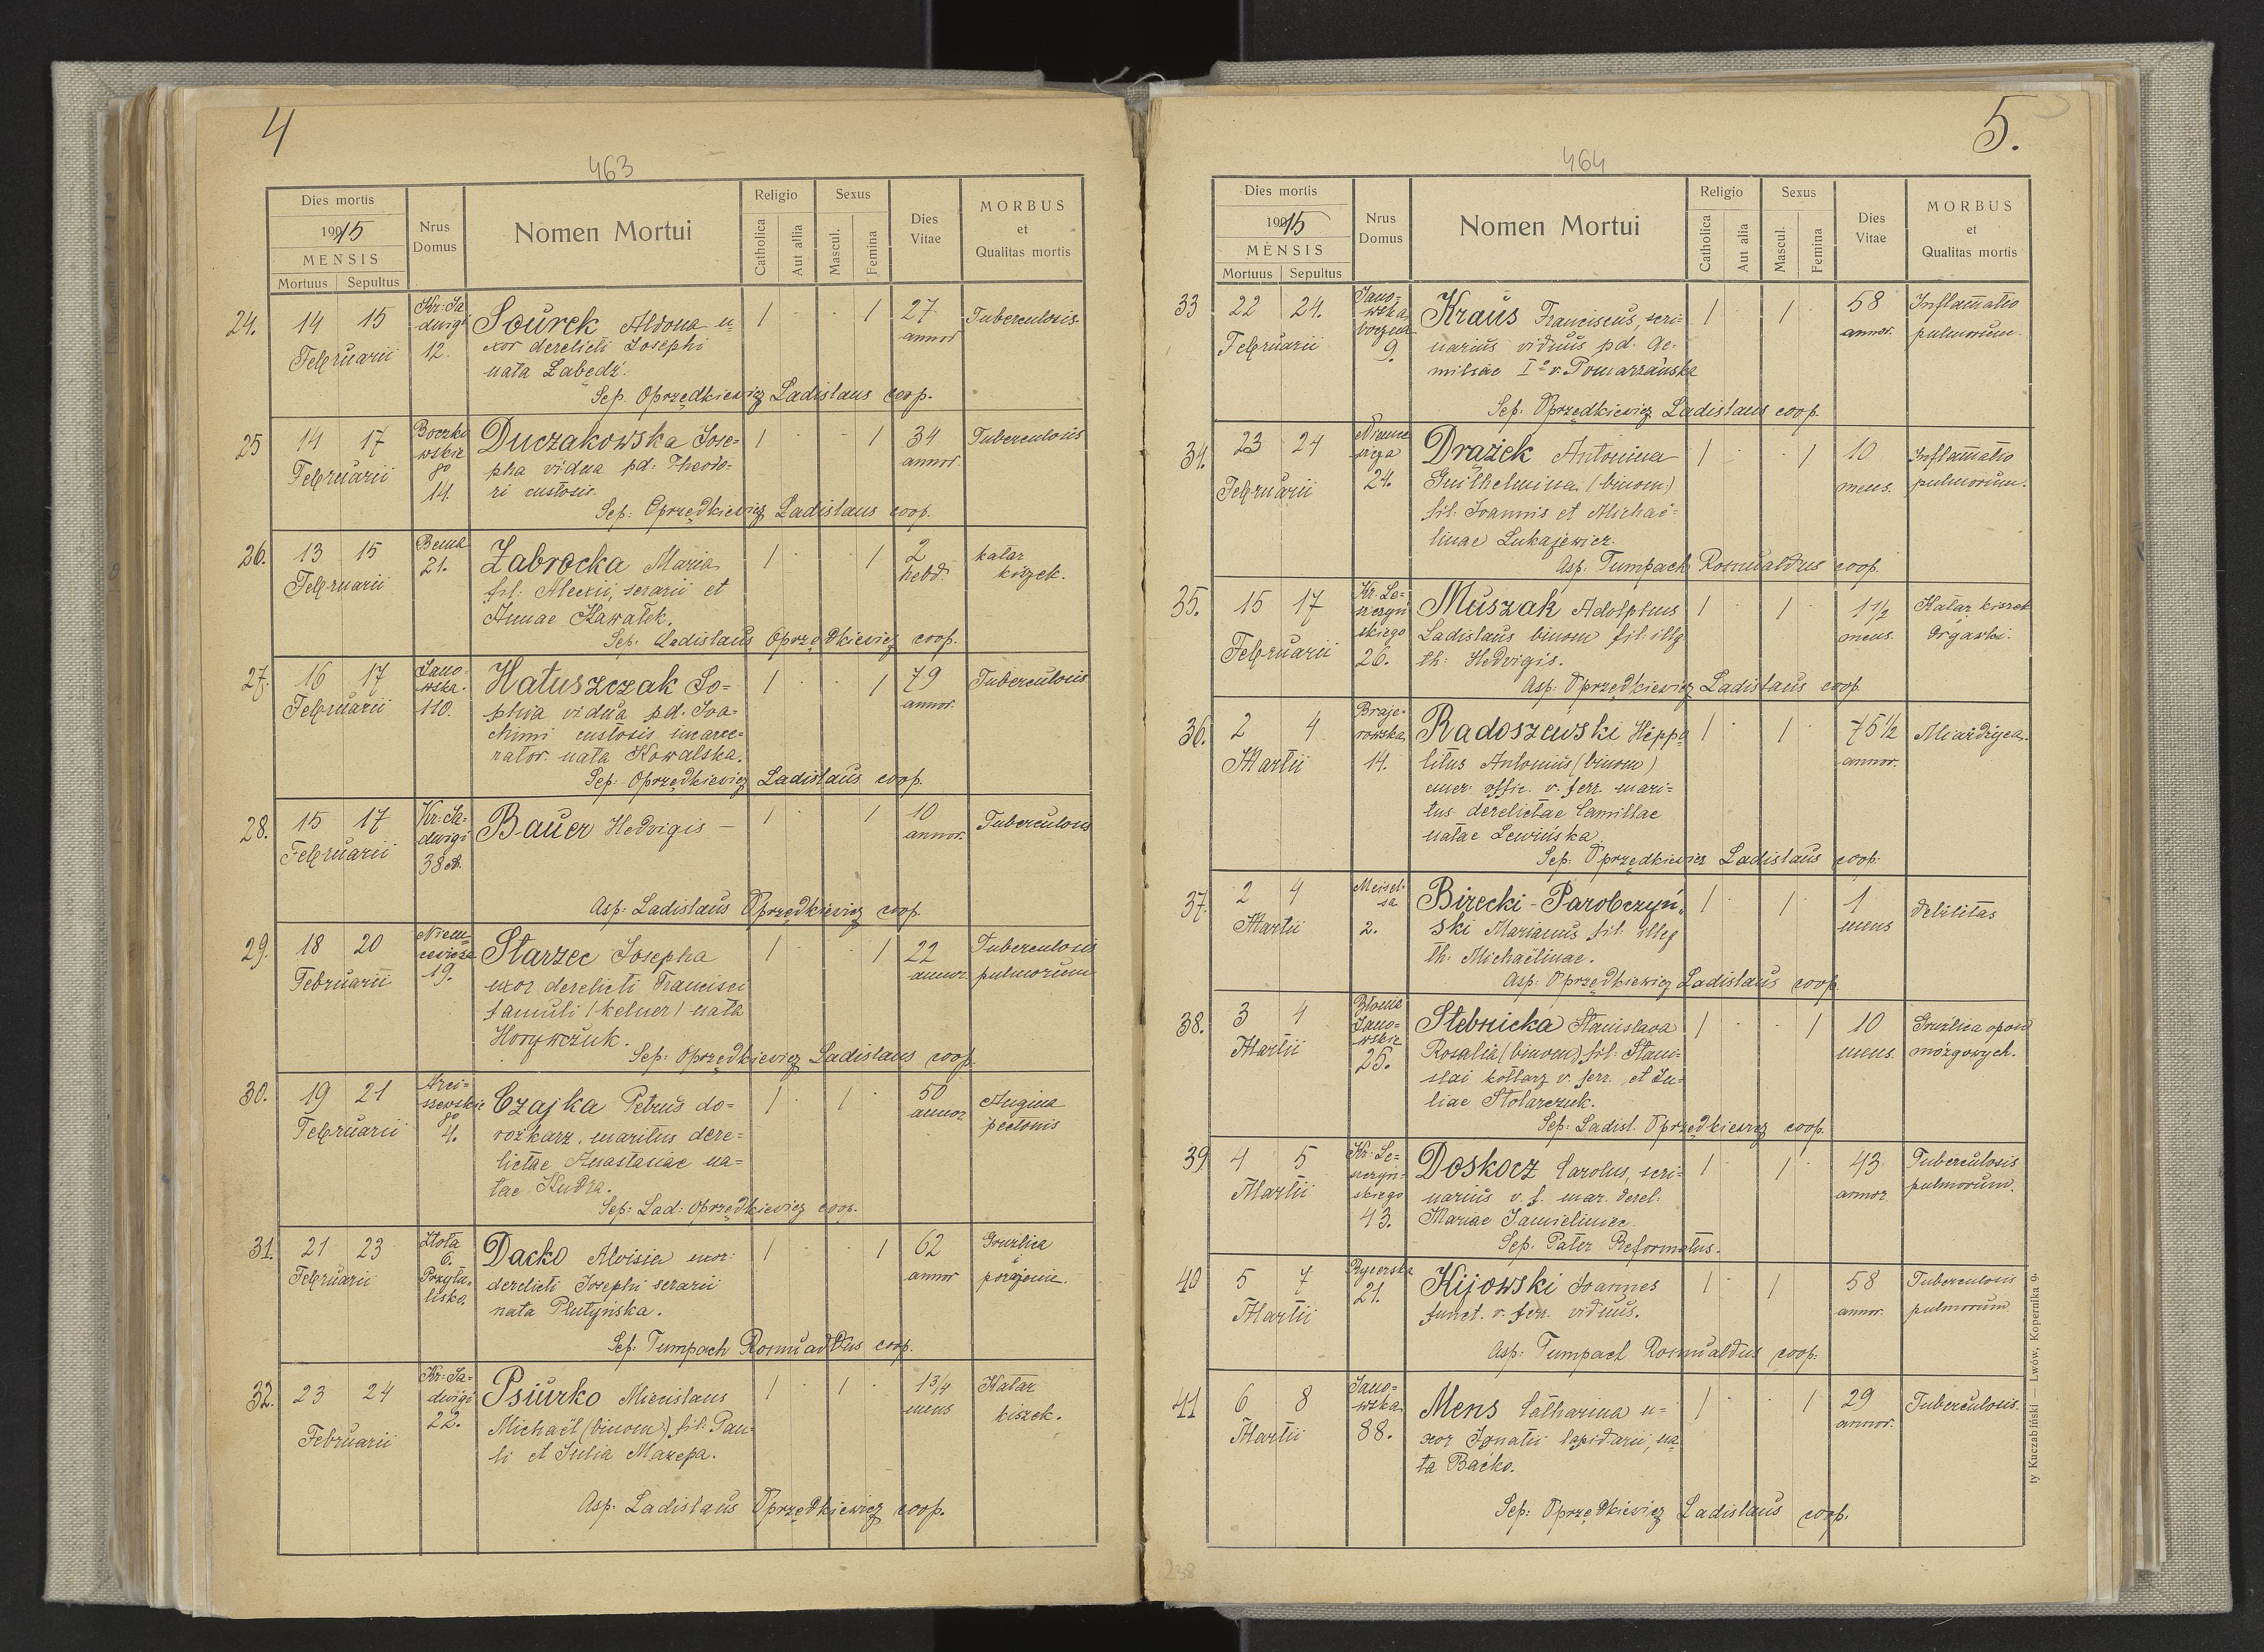 4
463
Dies mortis
1915
MENSIS
Mortuus Sepultus
Nrus Domus
Nomen Mortui
Religio
Catholica
Aut allia
Sexus
Mascul.
Femina
Dies Vitae
MORBUS
et
Qualitas mortis
24. 14 15 Kr: Ja Sourek Aldona u- 1 1 27 Tuberculosis.
Februarii dwigi xor derelicti Josephi annor
12. nata Łabędź.
Sep. Oprzędkiewicz Ladislaus coop.
25 14 17 Boczko Duczakowska Jose= 1 1 34 Tuberculosis
Februarii wskie pha vidua pd: Theodo= annor.
go ri custosis.
14.
Sep: Oprzędkiewicz Ladislaus coop.
26. 13 15 Bema Zabrocka Maria 1 1 2 katar
Februarii 21. fil: Alexii, serarii et hebd. kiszek.
Annae Kawałek.
Sep: Ladislaus Oprzędkiewicz coop.
27. 16 17 Jano- Hatuszczak So= 1 1 79 Tuberculosis
Februarii wska. phia vidua pd. Joa= annor.
110. chimi custosis incarce=
rator. nata Kowalska.
Sep: Oprzędkiewicz Ladislaus coop.
28. 15 17 Kr: Ja- Bauer Hedvigis — 1 1 10 Tuberculosis
Februarii dwigi annor.
38
Asp: Ladislaus Oprzędkiewicz coop.
29. 18 20 Niem= Starzec Josepha 1 1 22 Tuberculosis
Februarii cewicza uxor derelicti Francisci annor. pulmorum
19. famuli (kelner) nata
Horywczuk.
Sep: Oprzędkiewicz Ladislaus coop.
30. 19 21 Arci= Czajka Petrus do= 1 1 50 Angina
Februarii szewskie rożkarz, maritus dere= annor pectoris
go lictae Anastasiae na=
4. tae Kudra.
Sep: Lad: Oprzędkiewicz coop.
31. 21 23 Złota Dacko Aloisia uxor: 1 1 62 Gruźlica
Februarii 6. derelicti Josephi serarii annor
Przytu- nata Plutyńska.
lisko.
Sep: Tumpach Romualdus coop.
32. 23 24 Kr: Ja= Psiurko Miecislaus 1 1 1 3/4 Katar
Februarii dwigi Michaël (binom) fil: Pau- mens kiszek.
22. li et Julia Mazepa.
Asp: Ladislaus Oprzędkiewicz coop.
5.
464
Dies mortis
1915
MENSIS
Mortuus Sepultus
Nrus Domus
Nomen Mortui
Religio
Catholica
Aut alia
Sexus
Mascul.
Femina
Dies Vitae
MORBUS
et
Qualitas mortis
33 22 24. Jano= Kraus Franciscus, scri= 1 1 58 Inflamatio
Februarii wska narius viduus pd. Ae= annor. pulmorum.
boczna miliae I° v. Pomarzańska
9.
Sep: Oprzędkiewicz Ladislaus coop.
34. 23 24 Niemce Drążek Antonina 1 1 10 Inflamatio
Februarii wicza Guilhelmina (binom) mens. pulmorum.
24. fil: Joannis et Michaë=
linae Łukajewicz.
Asp: Tumpach Romualdus coop.
35. 15 17 Kr: Le= Muszak Adolphus 1 1 1 1/2 Katar kiszek
Februarii szczyń Ladislaus binom fil: illg mens.
skiego th: Hedvigis.
26.
Asp: Oprzędkiewicz Ladislaus coop.
36. 2 4 Braje- Radoszewski Hippo 1 1 75 1/2 Miażdżyca.
Martii rowska litus Antonius (binom) annor.
14. emer. offic. v. ferr. mari=
tus derelictae Camillae
natae Lewińska
Sep: Oprzędkiewicz Ladislaus coop.
37. 2 4 Meisel- Birecki-Parobczyń- 1 1 1 Debilitas
Martii sa ski Marianus fil. illeg mens
2. th: Michaëlinae.
Asp: Oprzędkiewicz Ladislaus coop.
38. 3 4 Błonie Stebnicka Stanislava 1 1 10 Gruźlica opon
Martii Jano= Rosalia (binom) fil: Stani= mens. mózgowych.
wskie slai kotlarz v. ferr. et Ju=
25. liae Stolarczuk.
Sep: Ladisl. Oprzędkiewicz coop.
39 4 5 Kr: Le= Doskocz Carolus, scri= 1 1 43 Tuberculosis
Martii szczyń- narius v. f. mar. derel. annor. pulmorum.
skiego Mariae
43.
Sep. Pater Reformatus.
40 5 7 Rycerska Kijowski Joannes 1 1 58 Tuberculosis
Martii 21. funct. v. ferr. viduus. annor. pulmorum
Asp: Tumpach Romualdus coop:
41 6 8 Jano= Mens Catharina u= 1 1 29 Tuberculosis.
Martii wska xor Ignatii lapidarii, na= annor.
88. ta Baćko.
Sep: Oprzędkiewicz Ladislaus coop.
238
ty Kuczabiński — Lwów, Kopernika 9.